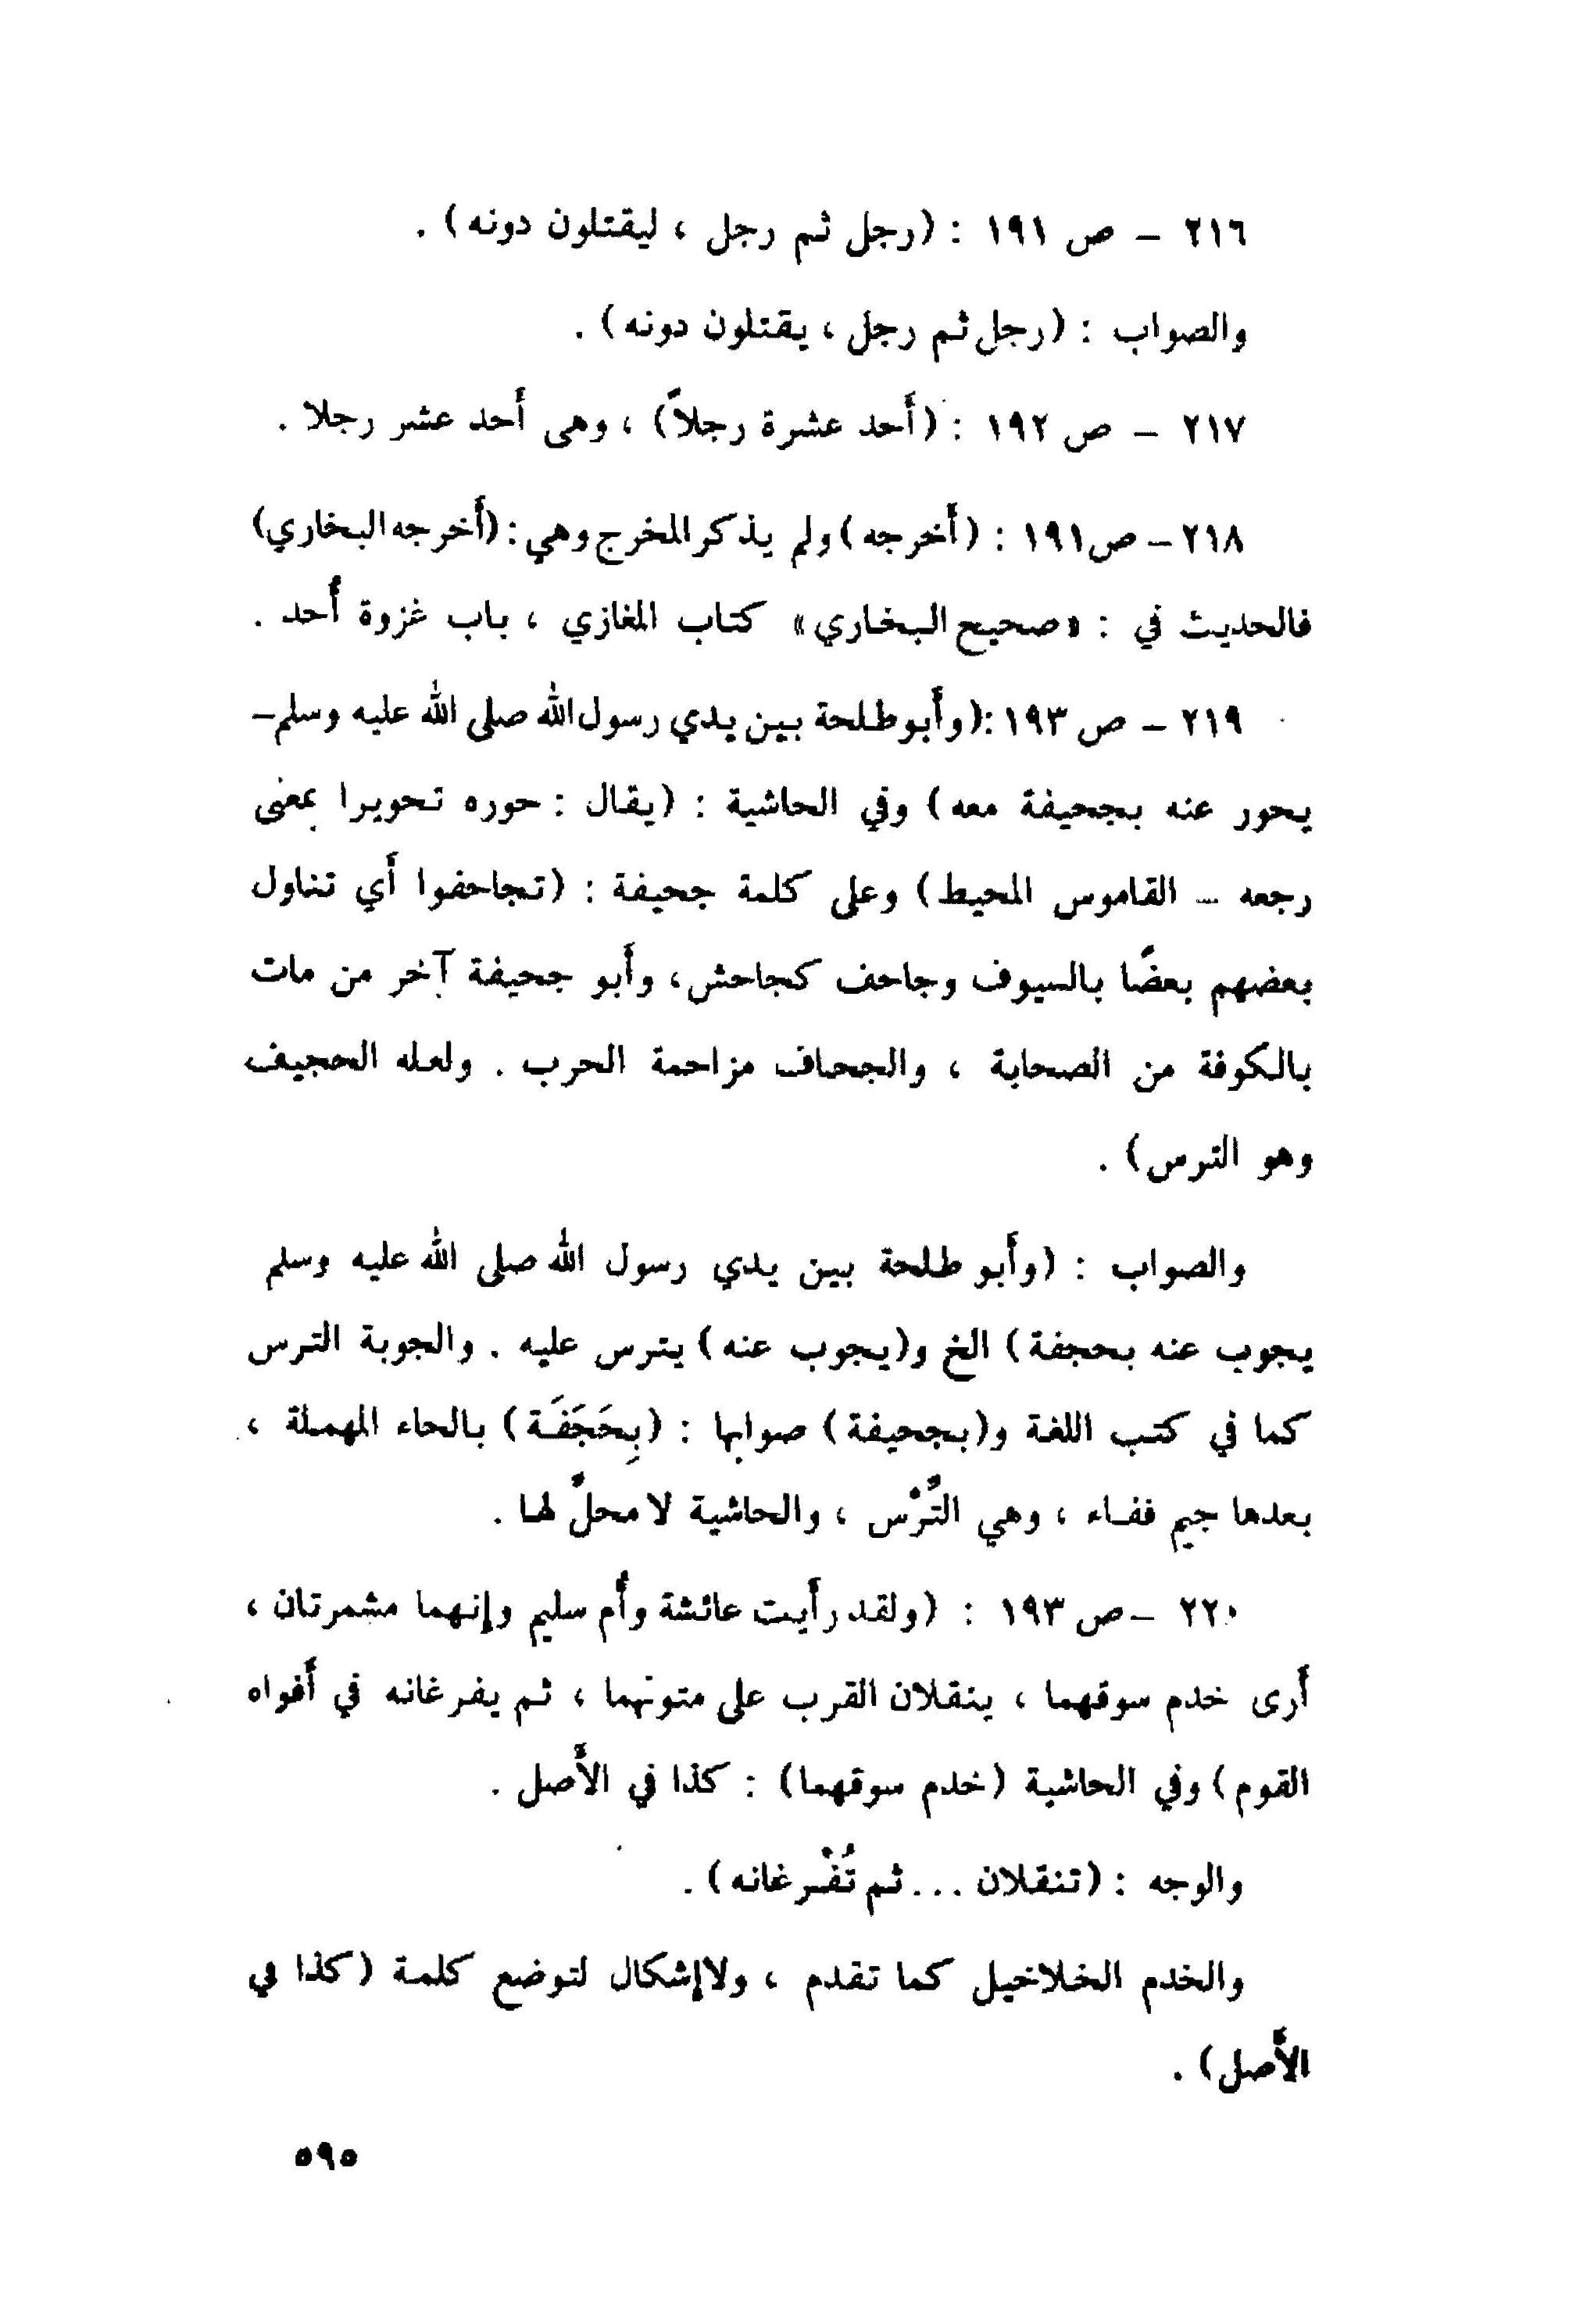 ٢١٦ - ص ١٩١ : (رجل ثم رجل ، ليقتلون دونه) .
والصواب : (رجل ثم رجل ، يقتلون دونه) .
٢١٧ - ص ١٩٢ : (أحد عشرة رجلاً) ، وهى أحد عشر رجلا .
٢١٨ - ص١٩١ : (أخرجه) ولم يذكر المخرج وهي : (أخرجه البخاري)
فالحديث في : «صحيح البخاري» كتاب المغازي ، باب غزوة أُحد .
٢١٩ - ص ١٩٣ : (وأبو طلحة بين يدي رسول الله صلى الله عليه وسلم-
يحور عنه بجحيفة معه) وفي الحاشية : (يقال : حوره تحويرا بمعنى
رجعه - القاموس المحيط) وعلى كلمة جحيفة : (تجاحفوا أي تناول
بعضهم بعضًا بالسيوف وجاحف كجاحش، وأبو جحيفة آخر من مات
بالكوفة من الصحابة ، والجحاف مزاحمة الحرب . ولعله الحجيف
وهو الترس) .
والصواب : (وأبو طلحة بين يدي رسول الله صلى الله عليه وسلم
يجوب عنه بحجفة) الخ و(يجوب عنه) يترس عليه . والجوبة الترس
كما في كتب اللغة و(بجحيفة) صوابها : (بِحَجَفَة) بالحاء المهملة ،
بعدها جيم ففاء ، وهي التُّرْس ، والحاشية لا محلَّ لها .
٢٢٠ - ص ١٩٣ : (ولقد رأيت عائشة وأُم سليم وإنهما مشمرتان ،
أرى خدم سوقهما ، ينقلان القرب على متونهما ، ثم يفرغانه في أفواه
القوم) وفي الحاشية (خدم سوقهما) : كذا في الأصل .
والوجه : (تنقلان ... ثم تُفْرغانه) .
والخدم الخلاخيل كما تقدم ، ولا إشكال لتوضع كلمة (كذا في
الأصل) .
٥٩٥